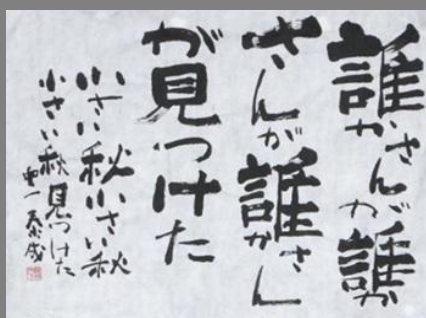 誰かさんが誰か
さんが誰かさん
が見つけた
小さい秋小さい秋
小さい秋見つけた
中一 泰成